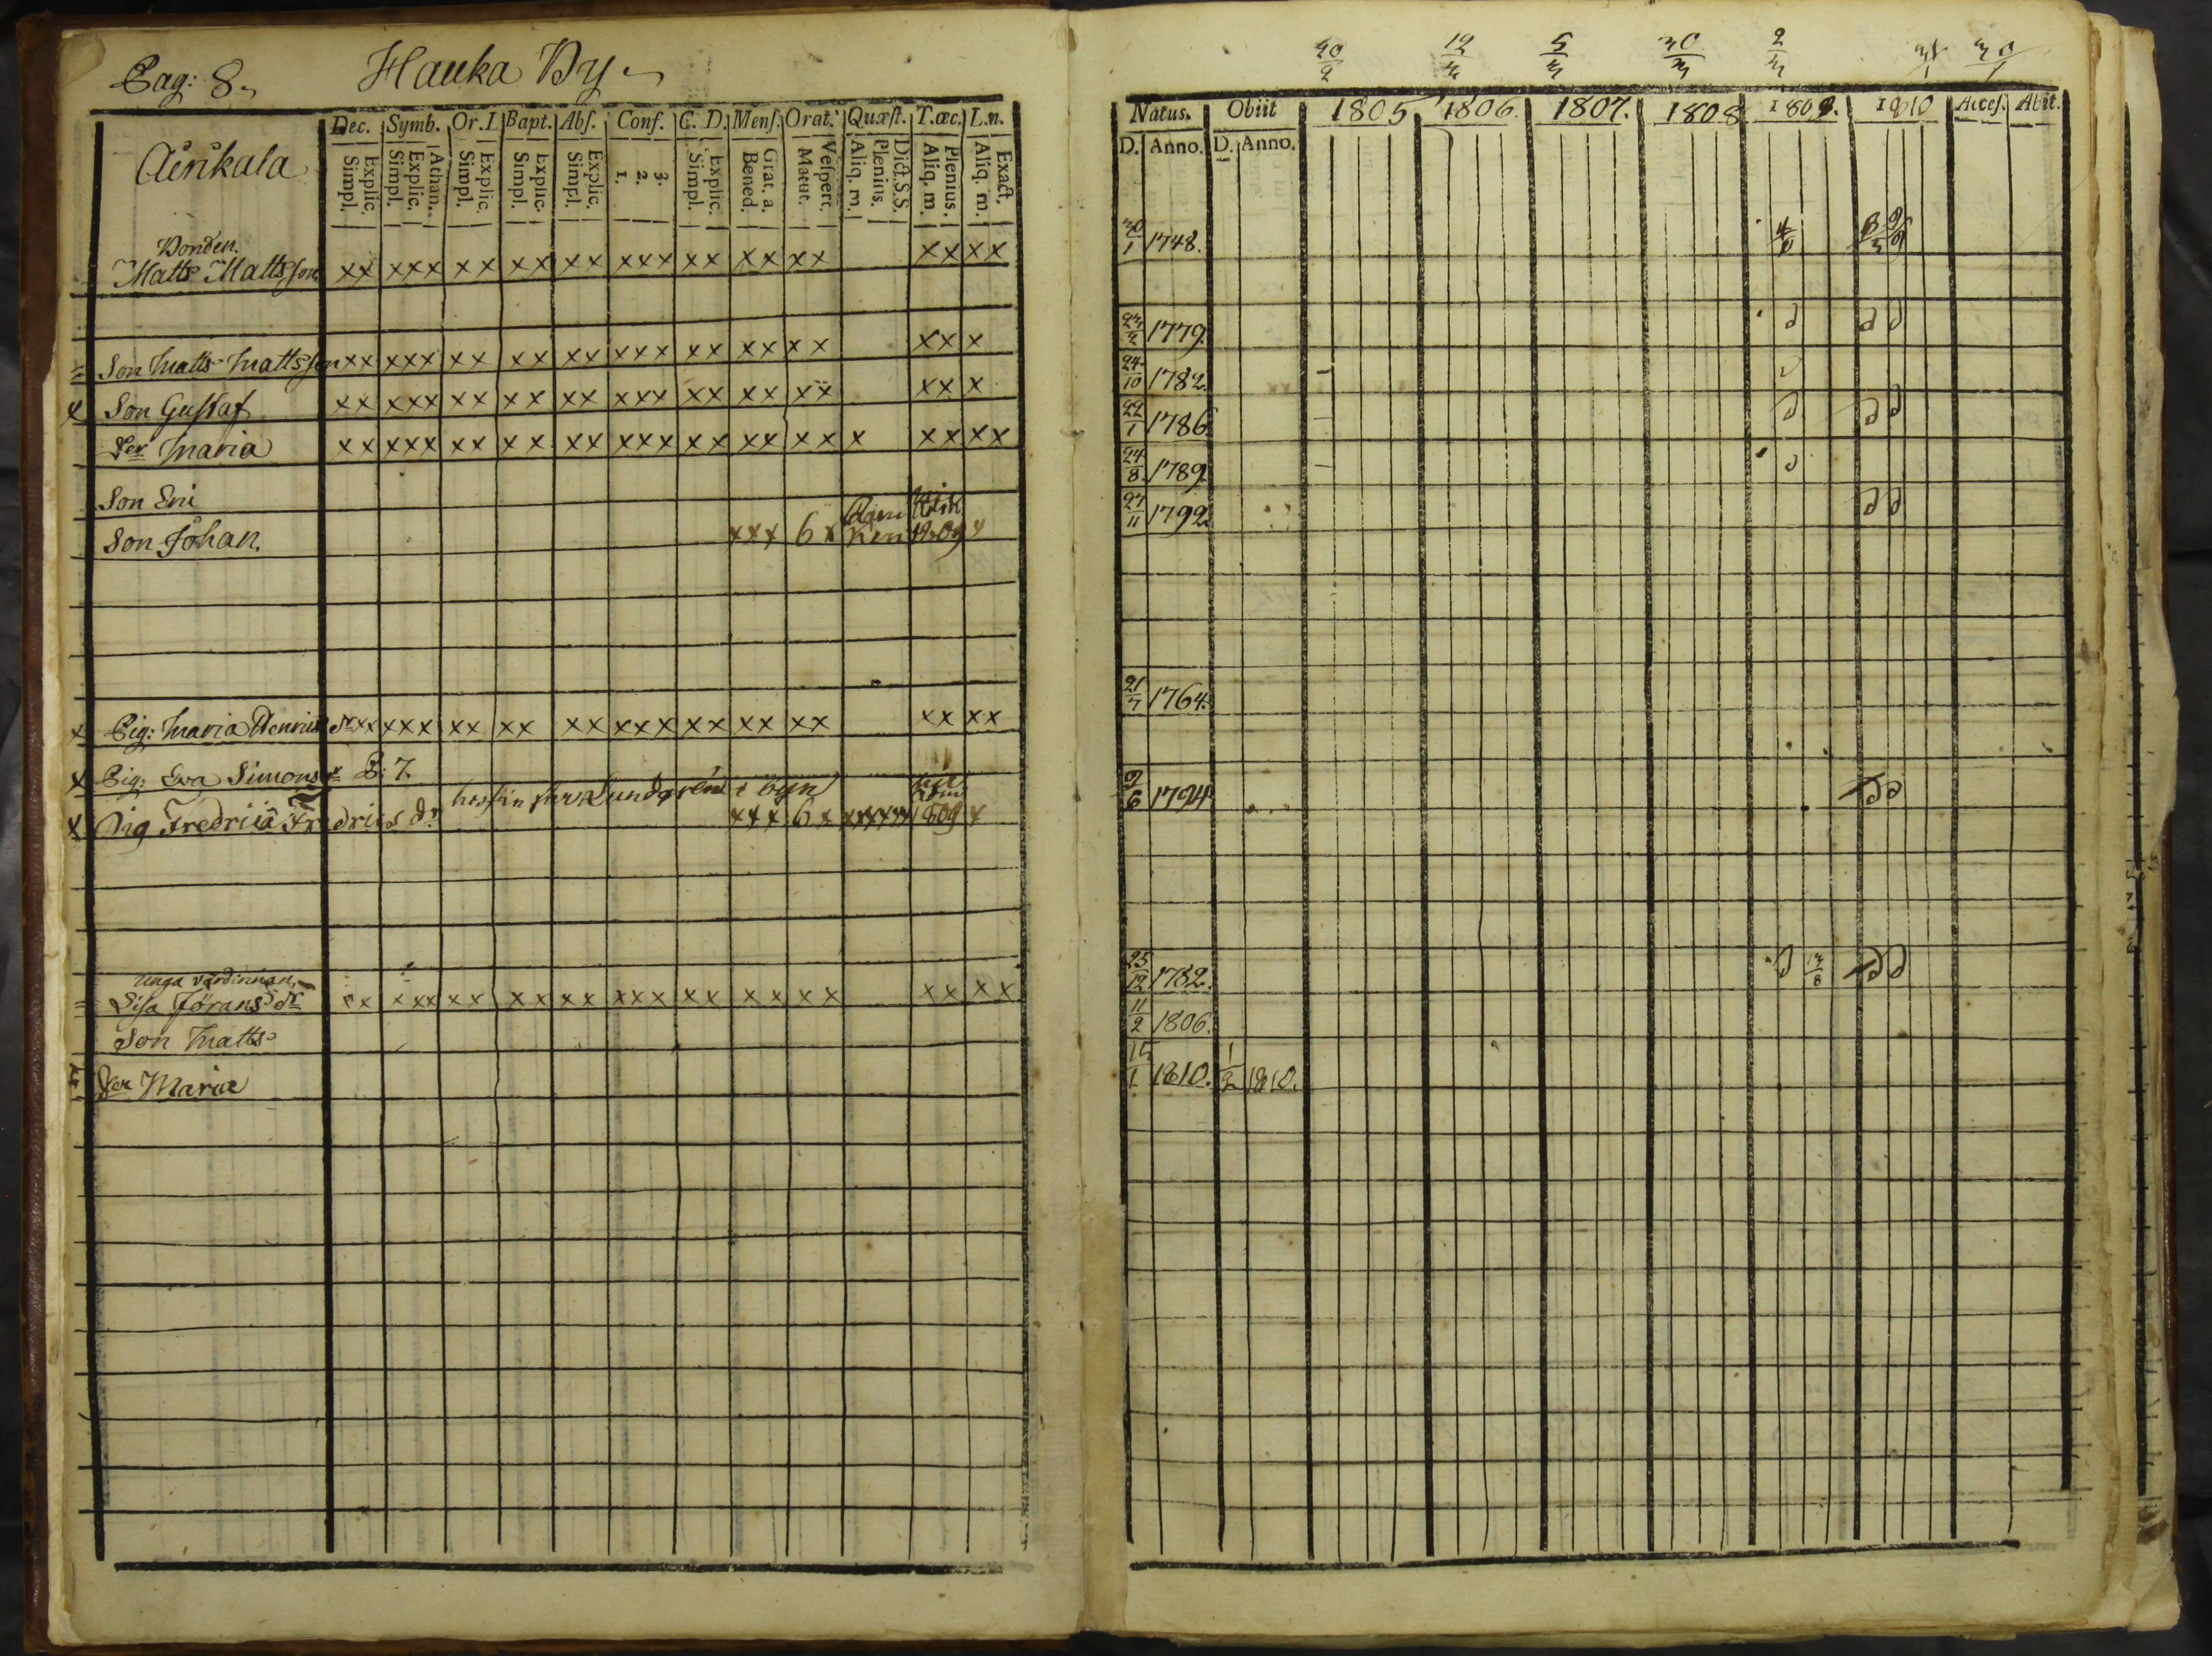 Pag: 8. Hauka By
Dec. Symb. Or. I. Bapt. Abſ. Conf. C. D. Menſ. Orat. Quæſt. T. œc. L. n.
Explic. Simpl. Athan. Explic. Simpl. Explic. Simpl. Explic. Simpl. Explic. Simpl. 3. 2. 1. Explic. Simpl. Grat. a. Bened. Veſpert. Matut. Dict. S. S. Plenius. Aliq. m. Plenius. Aliq. m. Exact. Aliq. m.
Bonden.
Matts Mattsson xx xxx xx xx xx xxx xx xx xx xx xx
Son Matts Mattsson xx xxx xx xx xx xxx xx xx xx xx x
x Son Gustaf xx xxx xx xx xx xxx xx xx xx xx x
Der Maria xx xxx xx xx xx xxx xx xx xx x xx xx
Son Eric
Son Johan. xxx 6 x 1809
x Pig: Maria Henrics dr xx xxx xx xx xx xxx xx xx xx xx xx
x Pig: Eva Simons dr P. 7.
Lundgren i byn
x Pig Fredrica Fredrics dr xxx 6 x xxxxxx 1809 x
Unga värdinnan,
Lisa Jörans dr xx xxx xx xx xx xxx xx xx xx xx xx
Son Matts
Der Maria
20/2 12/3 5/3 30/3 2/3
Natus. Obiit 1805. 1806. 1807. 1808 1809. 1810 Acceſ. Abit.
D. Anno. D. Anno.
30/1 1748.
23/2 1779.
24/10 1782.
22/1 1786
24/8 1789
27/11 1792
21/7 1764.
9/6 1794
25/12 1782.
11/2 1806.
15/1 1810. 1/2 1810.